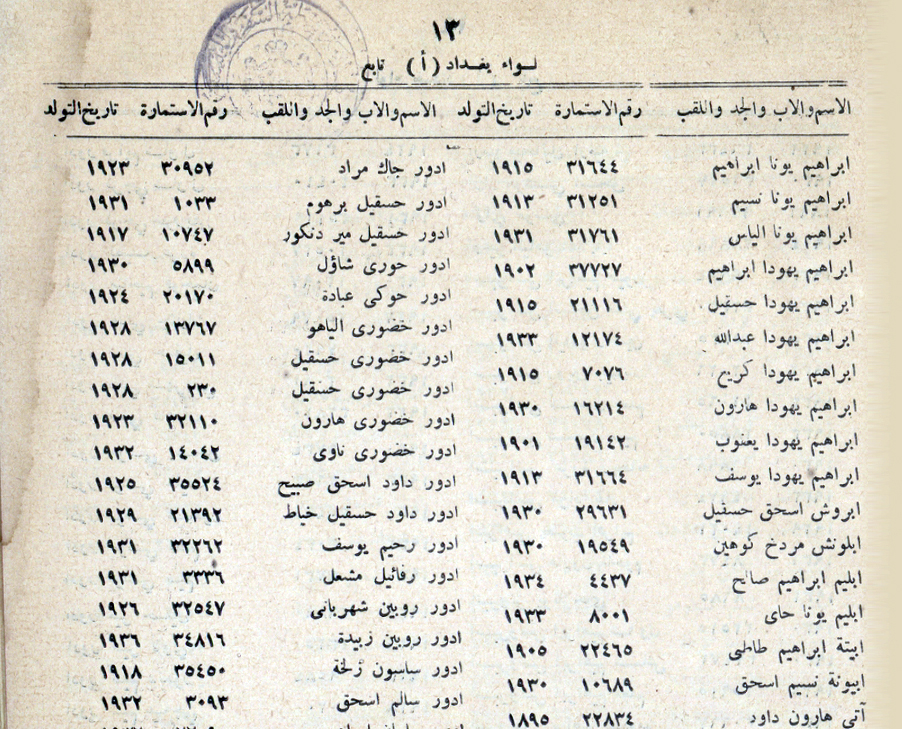 ١٣
لـواء بغـداد (أ) تابع
الاسم والاب والجد واللقب رقم الاستمارة تاريخ التولد
ابراهيم يونا ابراهيم ٣١٦٤٤ ١٩١٥
ابراهيم يونا نسيم ٣١٢٥١ ١٩١٣
ابراهيم يونا الياس ٣١٧٦١ ١٩٣١
ابراهيم يهودا ابراهيم ٣٧٧٢٧ ١٩٠٢
ابراهيم يهودا حسقيل ٢١١١٦ ١٩١٥
ابراهيم يهودا عبدالله ١٢١٧٤ ١٩٣٣
ابراهيم يهودا كرجي ٧٠٧٦ ١٩١٥
ابراهيم يهودا هارون ١٦٢١٤ ١٩٣٠
ابراهيم يهودا يعقوب ١٩١٤٢ ١٩٠١
ابراهيم يهودا يوسف ٣١٦٦٤ ١٩١٣
ابروش اسحق حسقيل ٢٩٦٣١ ١٩٣٠
ابلونش مردخ كوهين ١٩٥٤٩ ١٩٣٠
ابليم ابراهيم صالح ٤٤٣٧ ١٩٣٤
ابليم يونا حاى ٨٠٠١ ١٩٣٣
ابيتة ابراهيم طاطى ٢٢٤٦٥ ١٩٠٥
ابيونة نسيم اسحق ١٠٦٨٩ ١٩٣٠
آتى هارون داود ٢٢٨٣٤ ١٨٩٥
الاسم والاب والجد واللقب رقم الاستمارة تاريخ التولد
ادور جاك مراد ٣٠٩٥٢ ١٩٢٣
ادور حسقيل برهوم ١٠٣٣ ١٩٣١
ادور حسقيل مير دنكور ١٠٧٤٧ ١٩١٧
ادور حورى شاؤل ٥٨٩٩ ١٩٣٠
ادور حوكى عبادة ٢٠١٧٠ ١٩٢٤
ادور خضورى الياهو ١٣٧٦٧ ١٩٢٨
ادور خضورى حسقيل ١٥٠١١ ١٩٢٨
ادور خضورى حسقيل ٢٣٠ ١٩٢٨
ادور خضورى هارون ٣٢١١٠ ١٩٢٣
ادور خضورى ناوى ١٤٠٤٢ ١٩٣٢
ادور داود اسحق صبيح ٣٥٥٢٤ ١٩٢٥
ادور داود حسقيل خياط ٢١٣٩٢ ١٩٢٩
ادور رحيم يوسف ٣٢٢٦٢ ١٩٣١
ادور رفائيل مشعل ٣٣٣٦ ١٩٣١
ادور روبين شهربانى ٣٢٥٤٧ ١٩٢٦
ادور روبين زبيدة ٣٤٨١٦ ١٩٣٦
ادور ساسون زلخة ٣٥٤٥٠ ١٩١٨
ادور سالم اسحق ٣٠٩٣ ١٩٣٢